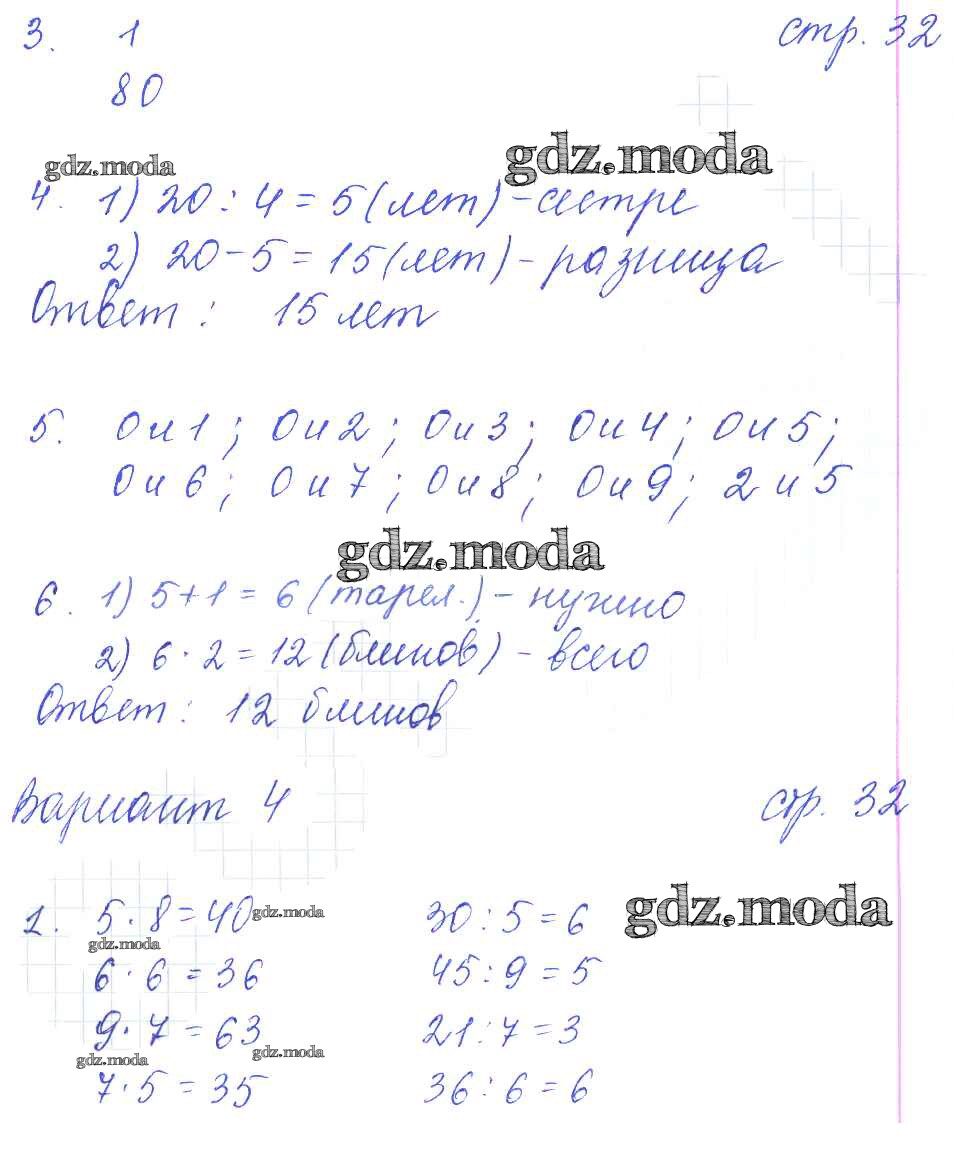 3. 1 стр. 32
80
gdz.moda gdz.moda
4. 1) 20 : 4 = 5 (лет) - сестре
2) 20 - 5 = 15 (лет) - разница
Ответ : 15 лет
5. 0 и 1 ; 0 и 2 ; 0 и 3 ; 0 и 4 ; 0 и 5 ;
0 и 6 ; 0 и 7 ; 0 и 8 ; 0 и 9 ; 2 и 5
gdz.moda
6. 1) 5 + 1 = 6 (тарел.) - нужно
2) 6 · 2 = 12 (блинов) - всего
Ответ : 12 блинов
Вариант 4 стр. 32
1. 5 · 8 = 40 gdz.moda 30 : 5 = 6 gdz.moda
gdz.moda
6 · 6 = 36 45 : 9 = 5
9 · 7 = 63 21 : 7 = 3
gdz.moda gdz.moda
7 · 5 = 35 36 : 6 = 6